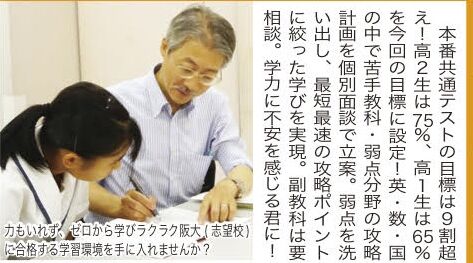 本番共通テストの目標は９割超
え！高２生は75%、高１生は65%
を今回の目標に設定！英・数・国
の中で苦手教科・弱点分野の攻略
計画を個別面談で立案。弱点を洗
い出し、最短最速の攻略ポイント
に絞った学びを実現。副教科は要
相談。学力に不安を感じる君に！
力もいれず、ゼロから学びラクラク阪大(志望校)
に合格する学習環境を手に入れませんか？